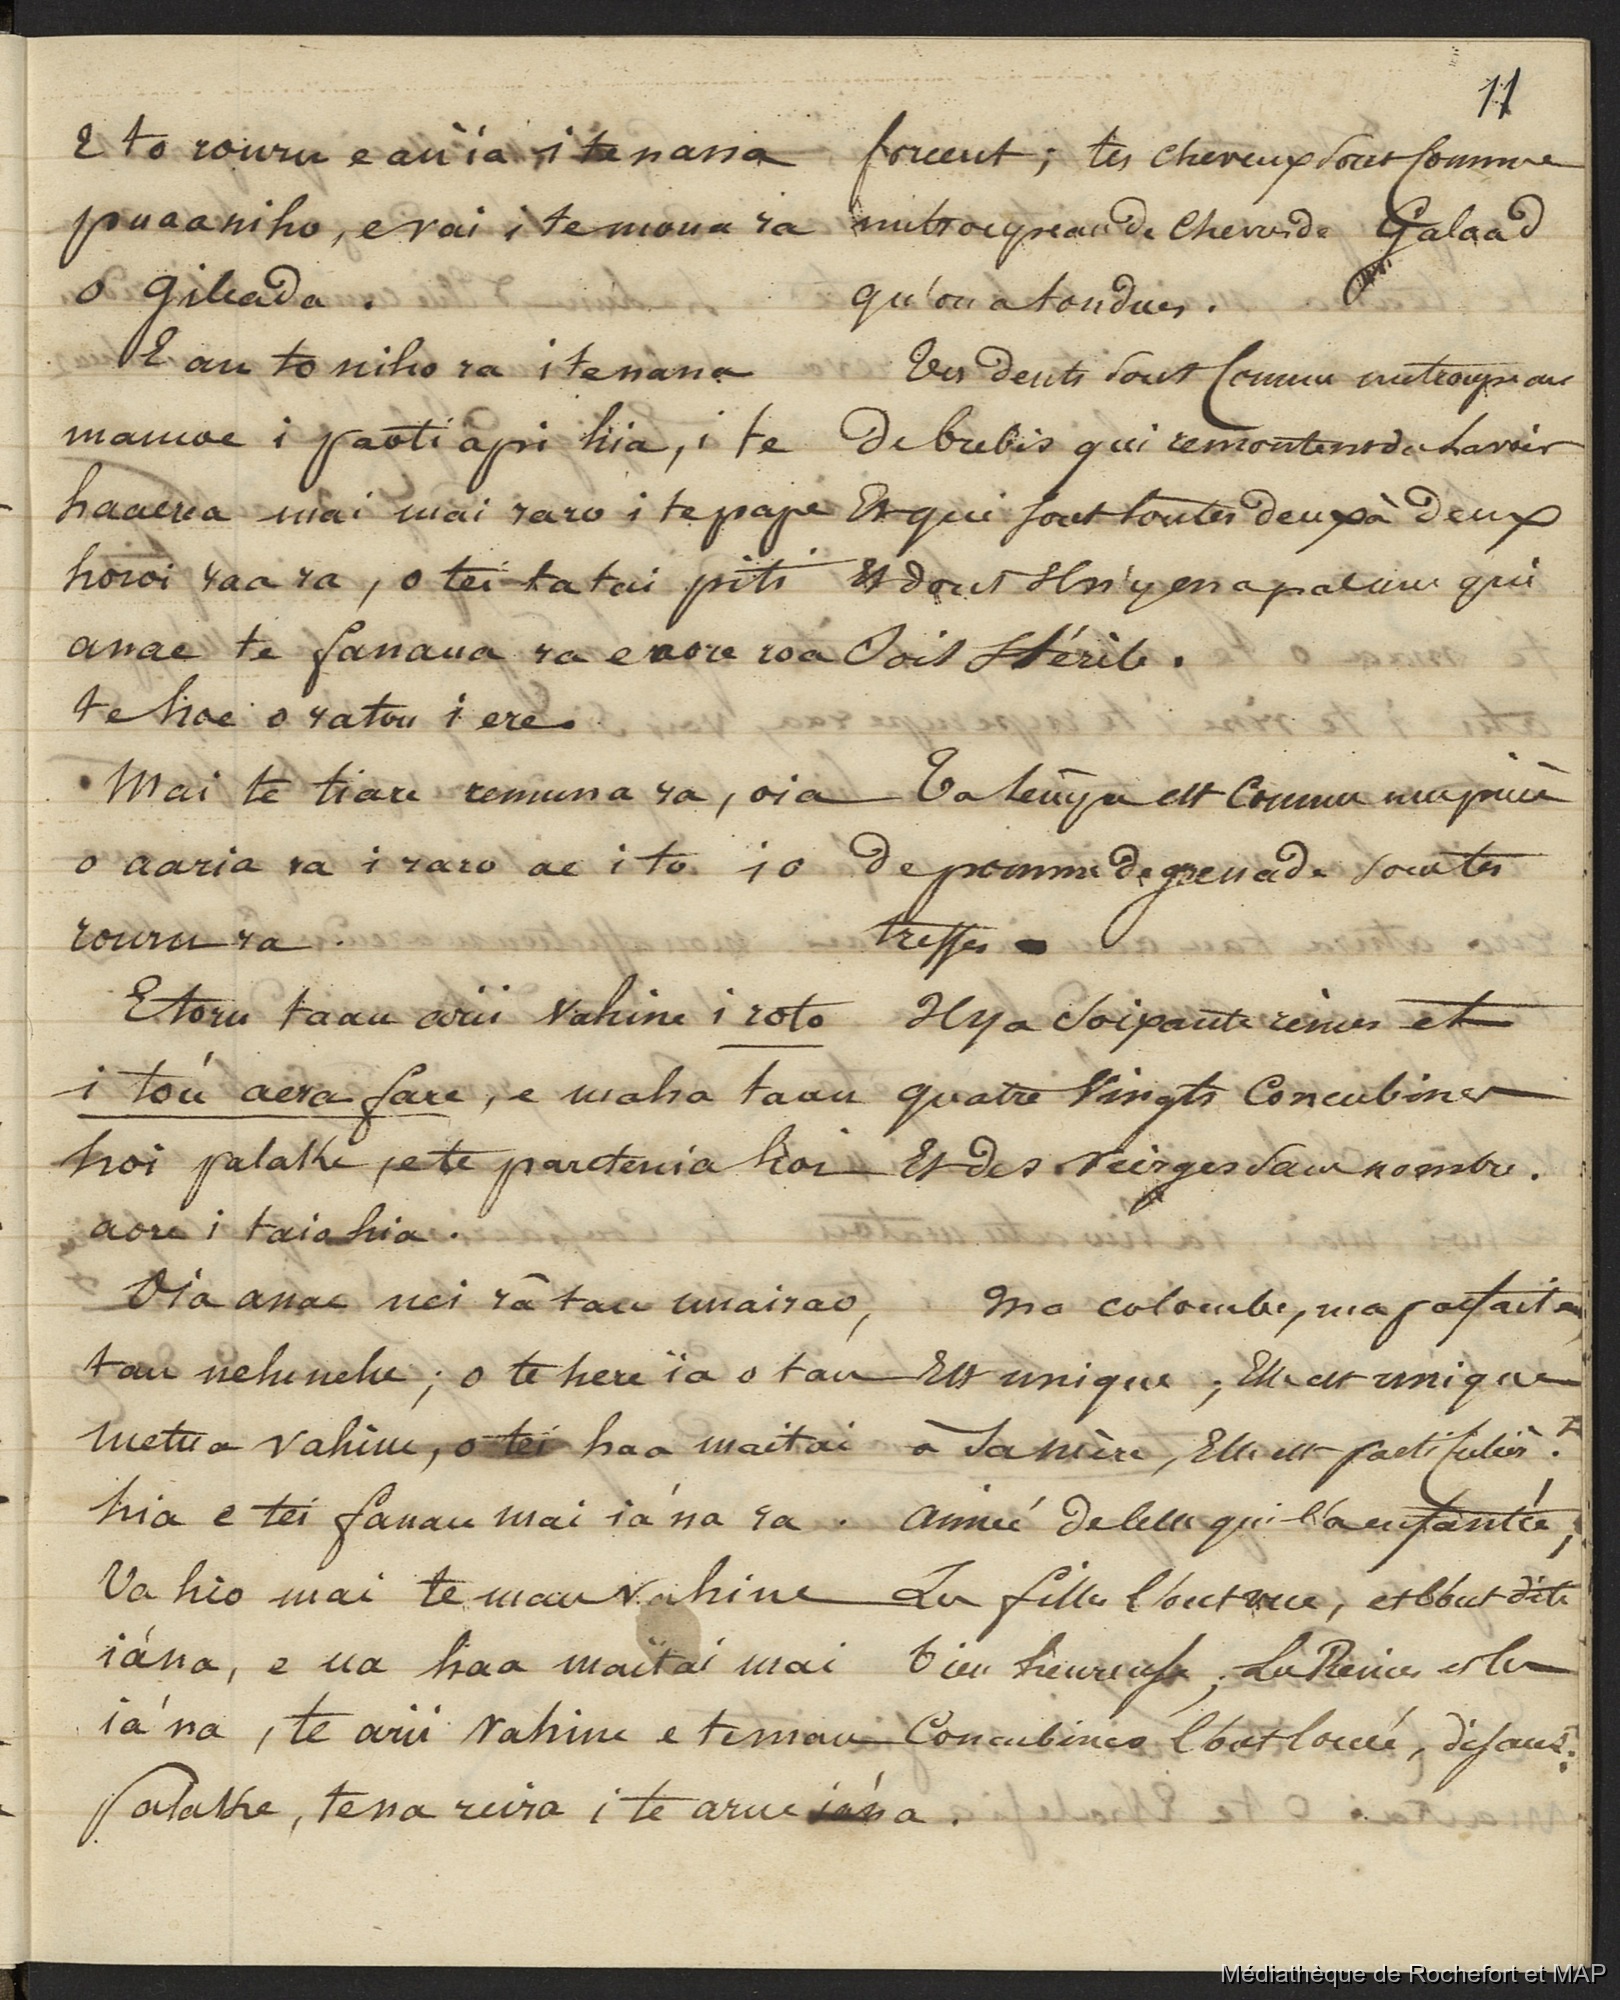 11
E to rouru e au ïa i te nana
puaaniho, e vai i te moua ra
o Gileada.
E au to niho ra i te nana
mamoe i paoti apî hia, i te
haaerea mai mai raro i te pape
horoi raa ra, o tei tatai piti
anae te fanaua ra e aore roa
te hoe o ratou i ere.
Mai te tiare remuna ra, oia
o aaria ra i raro ae i to io
rouru ra.
E toru taau arii vahine i roto
i tóù aera fare, e maha taau
hoi palake, e te paretenia hoi
aore i taiohia.
Oia anae nei râ tau unairao,
tau nehenehe; o te here ïa o tau
metua vahine, o tei haa maitai
hia e tei fanau mai iá na ra.
Ua hio mai te mau vahine
iána, e ua haa maitai mai
iá na, te arii vahine e te mau
palake, te na reira i te arue iána.
forcent; tes cheveux sont comme
un troupeau de chevres de Galaad
qu'on a tondues.
Tes dents sont comme un troupeau
de brebis qui remontent du lavoir
Et qui sont toutes deux à deux
Et dont il n'y en a pas une qui
soit stérile.
Ta tempe est comme une pièce
de pomme de grenade sous tes
tresses.
Il y a soixante reines et
quatre vingts concubines
Et des vierges sans nombre.
Ma colombe, ma parfaite
Est unique; Elle est unique
à sa mère, Elle est particulièr.t
aimée de celle qui l'a enfantée;
Les filles l'ont vue, et l'ont dite
bien heureuse; Les Reines et les
Concubines l'ont louée, disant:
Médiathèque de Rochefort et MAP